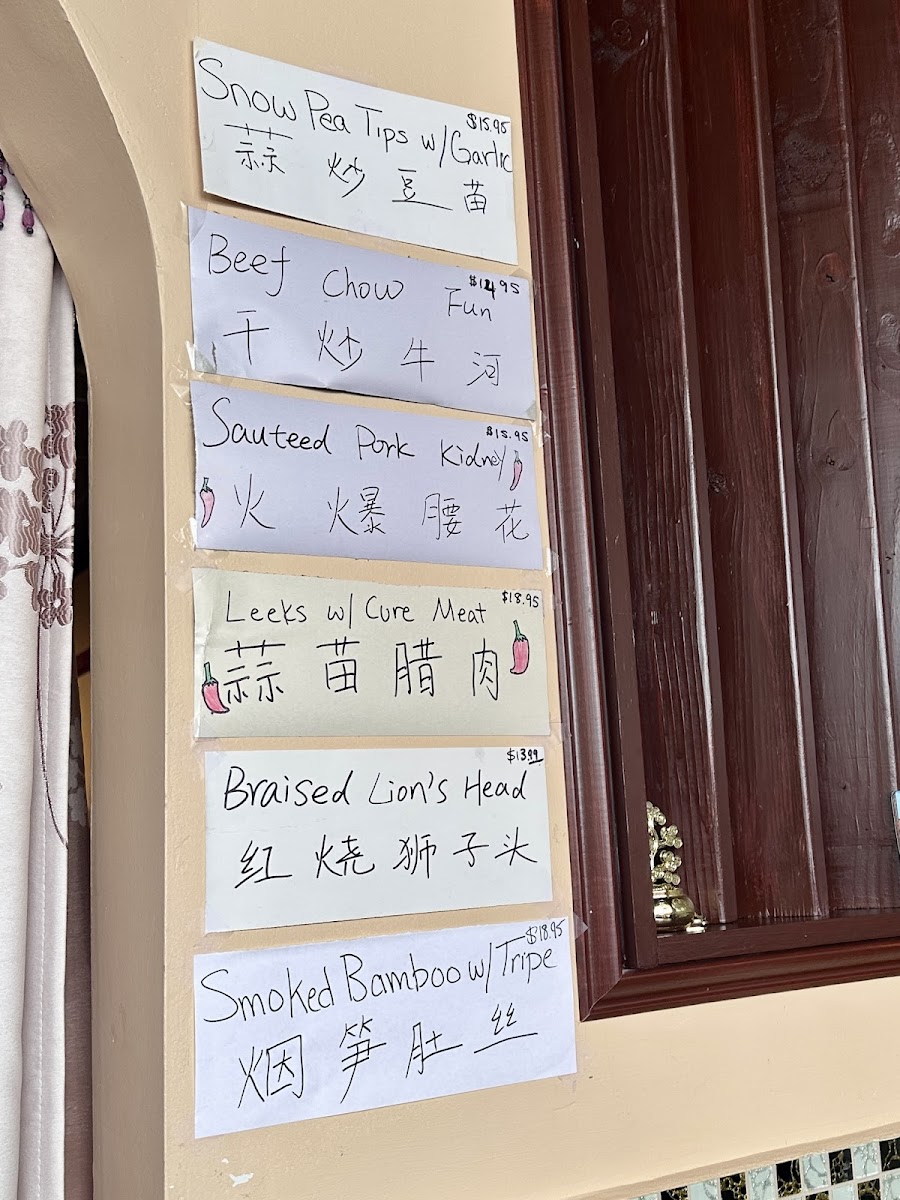 Snow Pea Tips w/Garlic $15.95
蒜炒豆苗
Beef Chow Fun $14.95
干炒牛河
Sauteed Pork Kidney $15.95
火爆腰花
Leeks w/ Cure Meat $18.95
蒜苗腊肉
Braised Lion's Head $13.99
红烧狮子头
Smoked Bamboo w/ Tripe $18.95
烟笋肚丝